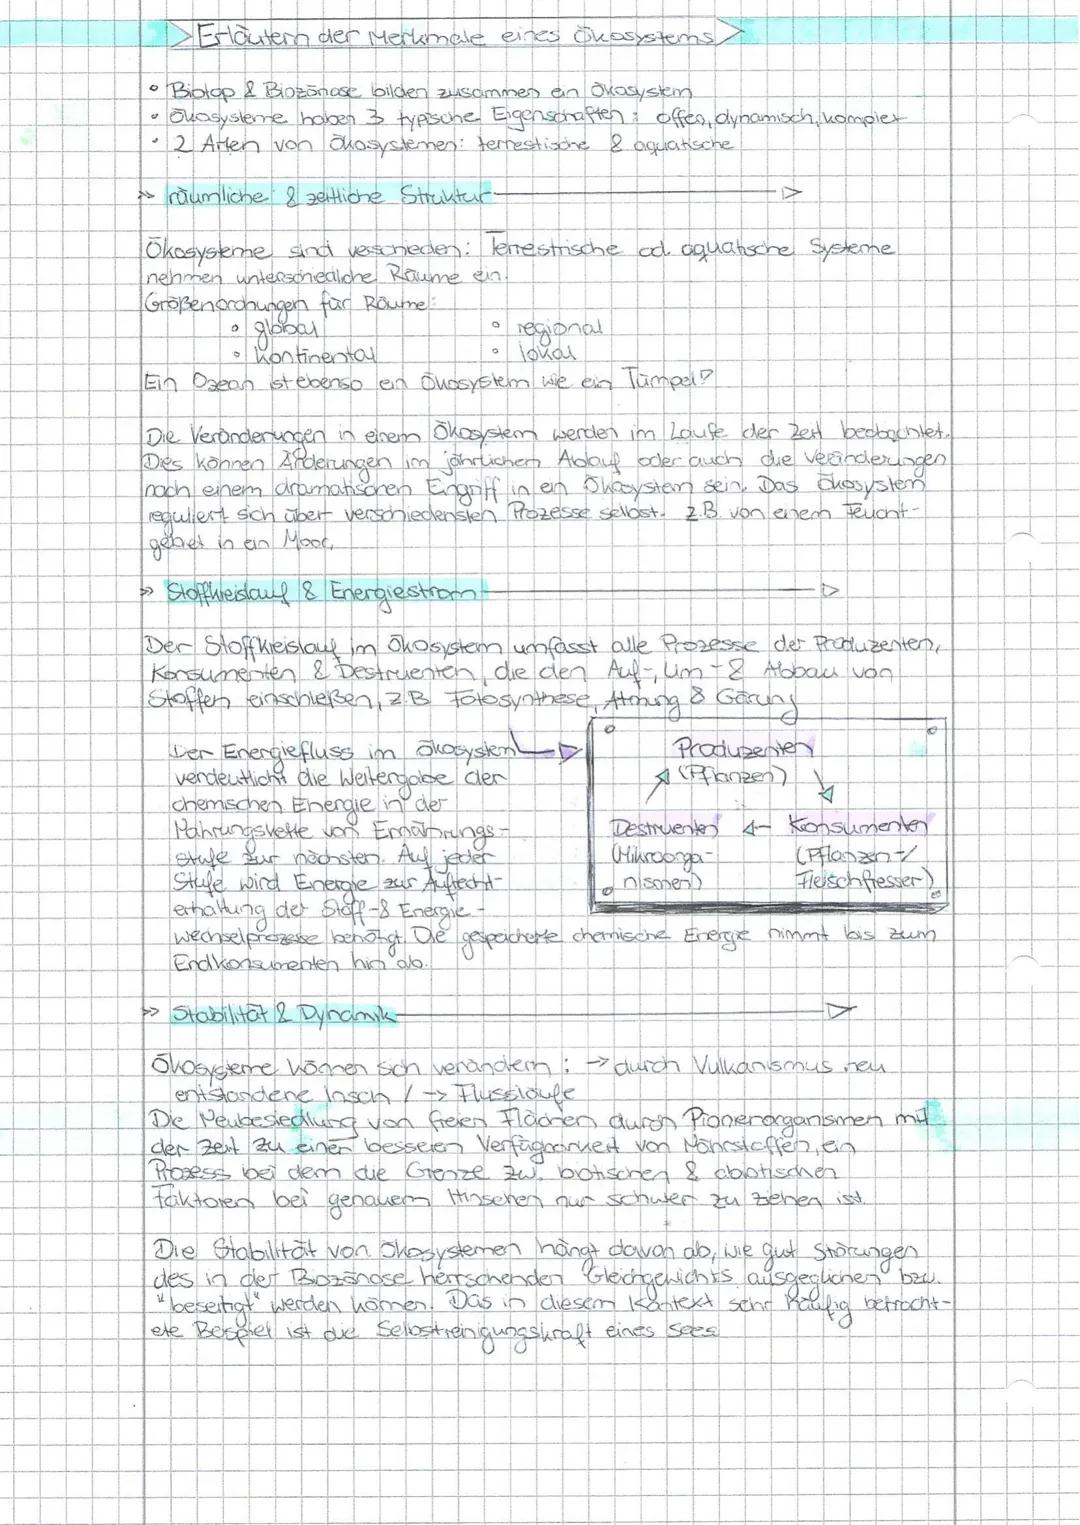 Erläutern der Merkmale eines Ökosystems
° Biotop & Biozönose bilden zusammen ein Ökosystem
° Ökosysteme haben 3 typische Eigenschaften: offen, dynamisch, komplex
° 2 Arten von Ökosystemen: terrestische & aquatische
>> räumliche & zeitliche Struktur
Ökosysteme sind verschieden: Terrestrische od. aquatische Systeme
nehmen unterschiedliche Räume ein.
Größenordnungen für Räume:
° global ° regional
° kontinental ° lokal
Ein Ozean ist ebenso ein Ökosystem wie ein Tümpel?
Die Veränderungen in einem Ökosystem werden im Laufe der Zeit beobachtet.
Dies können Änderungen im jährlichen Ablauf oder auch die Veränderungen
nach einem dramatischen Eingriff in ein Ökosystem sein. Das Ökosystem
reguliert sich über verschiedensten Prozesse selbst. z.B. von einem Feucht-
gebiet in ein Moor.
>> Stoffkreislauf & Energiestrom
Der Stoffkreislauf im Ökosystem umfasst alle Prozesse der Produzenten,
Konsumenten & Destruenten, die den Auf-, Um- & Abbau von
Stoffen einschließen, z.B Fotosynthese, Atmung & Gärung
Der Energiefluss im Ökosystem
verdeutlicht die Weitergabe der
chemischen Energie in der
Nahrungskette von Ernährungs-
stufe zur nächsten. Auf jeder
Stufe wird Energie zur Aufrecht-
erhaltung der Stoff-& Energie-
wechselprozesse benötigt. Die gespeicherte chemische Energie nimmt bis zum
Endkonsumenten hin ab.
Produzenten
(Pflanzen)
Destruenten <- Konsumenten
(Mikroorga- (Pflanzen-/
nismen) Fleischfresser)
>> Stabilität & Dynamik
Ökosysteme können sich verändern: -> durch Vulkanismus neu
entstandene Inseln / -> Flussläufe
Die Neubesiedlung von freien Flächen durch Pionierorganismen mit
der Zeit zu einer besseren von Nährstoffen, ein
Prozess bei dem die Grenze zw. biotischen & abiotischen
Faktoren bei genauem Hinsehen nur schwer zu ziehen ist.
Die Stabilität von Ökosystemen hängt davon ab, wie gut Störungen
des in der Biozönose herrschenden Gleichgewichts ausgeglichen bzw.
"beseitigt" werden können. Das in diesem Kontext sehr häufig betracht-
ete Beispiel ist die Selbstreinigungskraft eines Sees